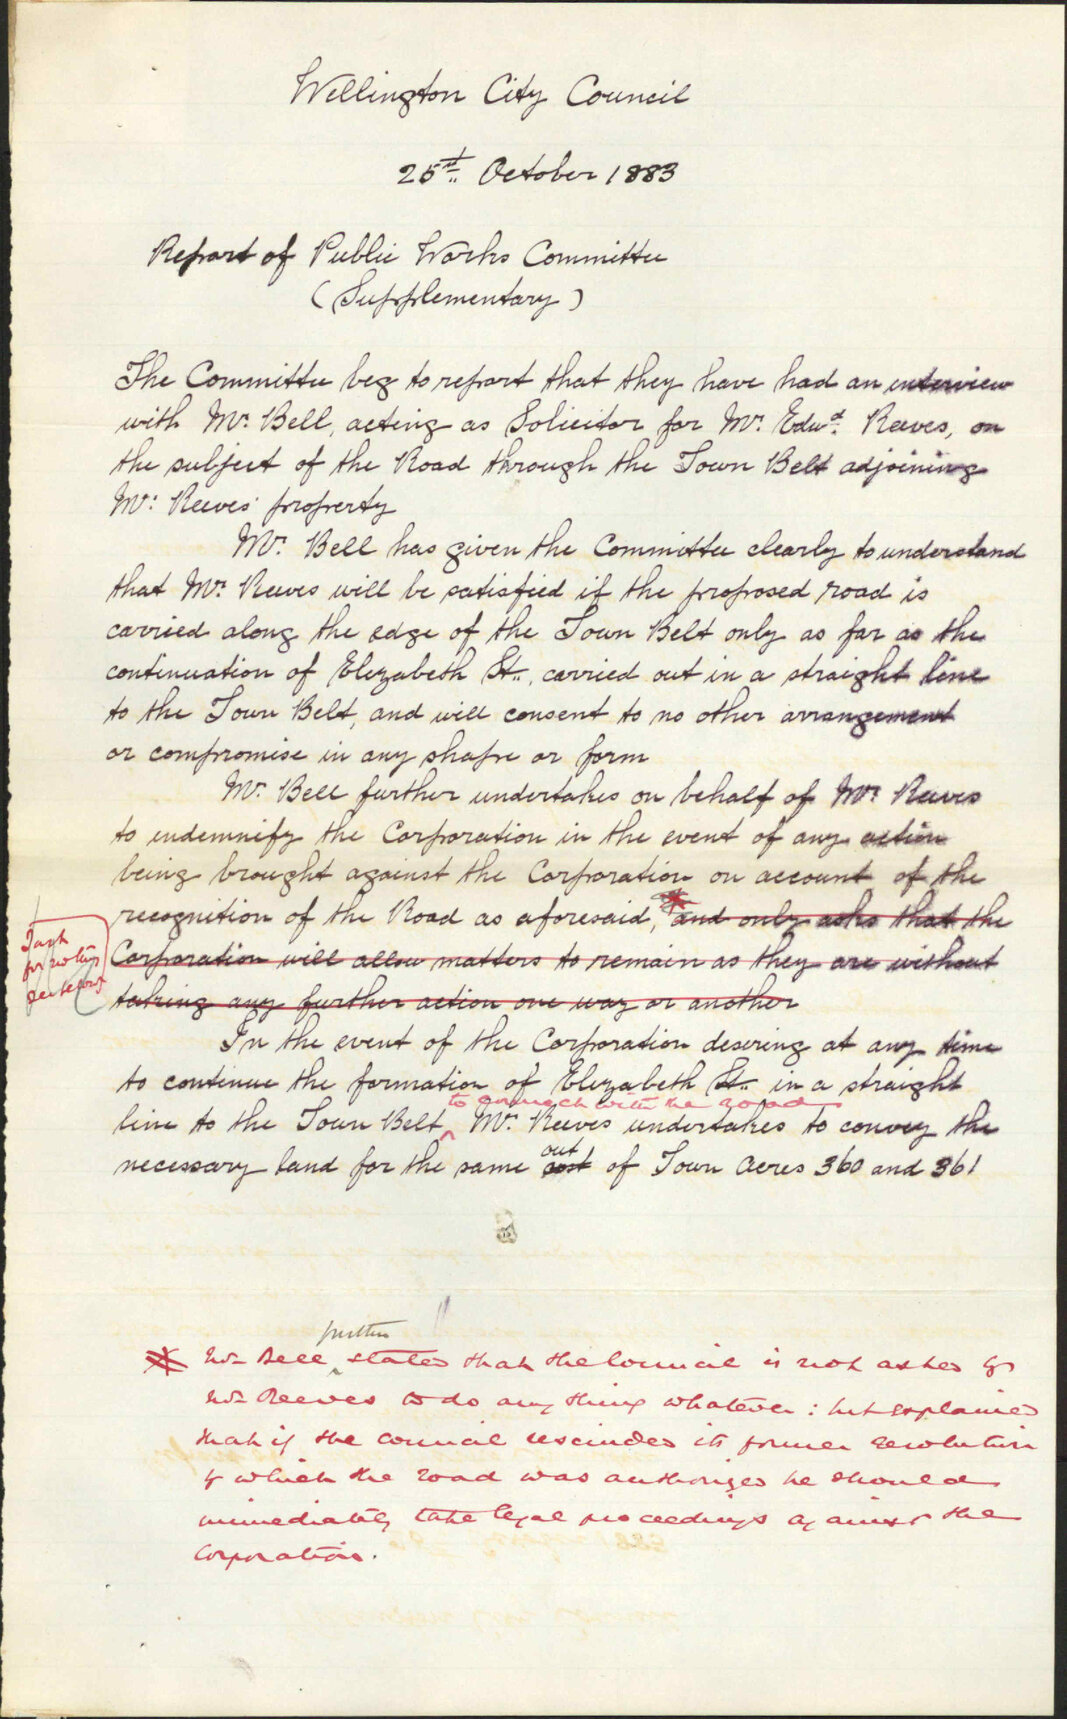 Wellington City Council
25th October 1883
Report of Public Works Committee
(Supplementary)
The Committee beg to report that they have had an interview
with Mr. Bell, acting as Solicitor for Mr. Edwd. Reeves, on
the subject of the Road through the Town Belt adjoining
Mr. Reeves' property
Mr. Bell has given the Committee clearly to understand
that Mr. Reeves will be satisfied if the proposed road is
carried along the edge of the Town Belt only as far as the
continuation of Elizabeth St., carried out in a straight line
to the Town Belt, and will consent to no other arrangement
or compromise in any shape or form
Mr. Bell further undertakes on behalf of Mr. Reeves
to indemnify the Corporation in the event of any action
being brought against the Corporation on account of the
recognition of the Road as aforesaid, and only asks that the
Corporation will allow matters to remain as they are without
taking any further action one way or another
In the event of the Corporation desiring at any time
to continue the formation of Elizabeth St. in a straight
to connect with the road
line to the Town Belt Mr. Reeves undertakes to convey the
out
necessary land for the same cost of Town Acres 360 and 361
further
Mr Bell states that the Council is not asked by
Mr Reeves to do any thing whatever: but explained
that if the council rescinded its former resolution
by which the road was authorized he should
immediately take legal proceedings against the
Corporation.